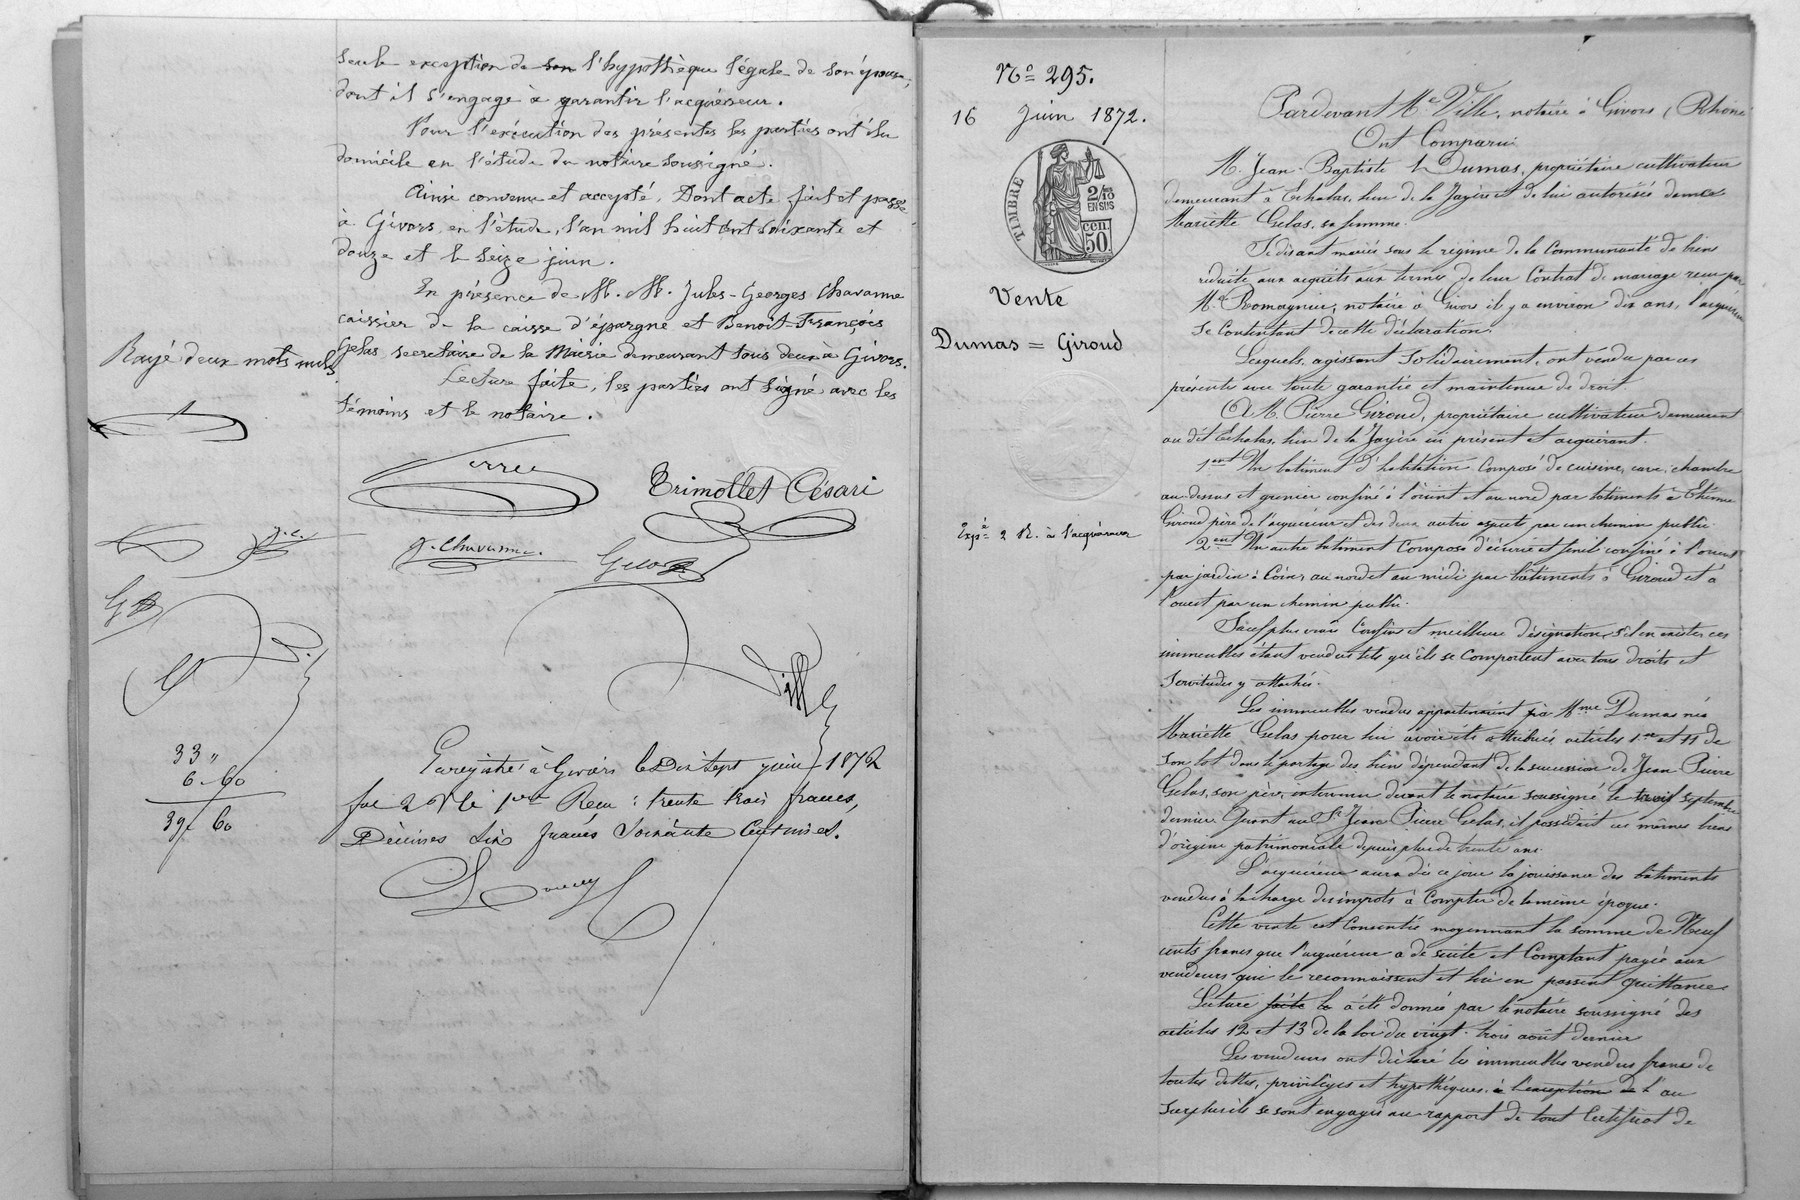 seule exception de son l'hypothèque légale de son épouse,
dont il s'engage à garantir l'acquéreur.
Pour l'exécution des présentes les parties ont élu
domicile en l'étude du notaire soussigné.
Ainsi convenu et accepté. Dont acte fait et passé
à Givors, en l'étude, l'an mil huit cent soixante et
douze et le seize juin.
En présence de M. M. Jules-Georges Chavanne
caissier de la caisse d'épargne et Benoît-François
Gelas, secrétaire de la Mairie demeurant tous deux à Givors.
Rayé deux mots nuls.
Lecture faite, les parties ont signé avec les
témoins et le notaire.
Trimollet Césari
J. C.
G. Chavanne
Gelas
Ville
33 "
6 - 60
39 - 60
Enregistré à Givors le Dix sept juin 1872
Reçu : trente trois francs,
Décimes six francs soixante centimes.
N° 295.
16 Juin 1872.
TIMBRE
2/10
EN SUS
50 cen.
Vente
Dumas = Giroud
Expé 2 R. à l'acquéreur
Pardevant Me Ville, notaire à Givors (Rhône
Ont Comparu
M. Jean-Baptiste Dumas, propriétaire cultivateur
demeurant à Echalas, lieu de la Jayère et de lui autorisée dame
Mariette Gelas, sa femme.
Se disant mariés sous le régime de la Communauté de biens
réduite aux acquêts aux termes de leur Contrat de mariage reçu par
Me Romagneu, notaire à Givors il y a environ dix ans, l'acquéreur
se Contentant de cette déclaration.
Lesquels, agissant Solidairement, ont vendu par ces
présentes avec toute garantie et maintenue de droit
A M. Pierre Giroud, propriétaire cultivateur demeurant
au dit Echalas, lieu de la Jayère ici présent et acquérant.
1ent Un batiment d'habitation Composé de cuisine, cave, chambre
au-dessus et grenier confiné à l'orient et au nord par batiments à Etienne
Giroud père de l'acquéreur et des deux autres aspects par un chemin public.
2ent Un autre batiment Composé d'écurie et fenil confiné à l'orient
par jardin à Coiner au nord et au midi par bâtiments à Giroud et à
l'ouest par un chemin public.
Sauf plus vrais Confins et meilleure désignation s'il en existe ces
immeubles étant vendus tels qu'ils se Comportent avec tous droits et
Servitudes y attachés.
Les immeubles vendus appartenaient à Mme Dumas née
Mariette Gelas pour lui avoir été attribués articles 1er et 11 de
son lot dans le partage des biens dépendant de la succession de Jean Pierre
Gelas, son père, intervenu devant le notaire soussigné le trois septembre
dernier. Quant au Sr Jean Pierre Gelas, il possédait ces mêmes biens
d'origine patrimoniale depuis plus de trente ans.
L'acquéreur aura dès ce jour la jouissance des bâtiments
vendus à la charge des impots à Compter de la même époque.
Cette vente est Consentie moyennant la somme de Neuf
cents francs que l'acquéreur a de suite et Comptant payée aux
vendeurs qui le reconnaissent et lui en passent quittance
Lecture faite la a été donnée par le notaire soussigné des
articles 12 et 13 de la loi du vingt-trois août dernier
Les vendeurs ont déclaré les immeubles vendus francs de
toutes dettes, privilèges et hypothèques, à l'exception de l' au
surplus ils se sont engagés au rapport de tout Certificat de